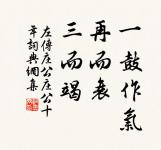 一鼓作氣
再而衰
三而竭
左傳莊公莊公十
年詞典網集